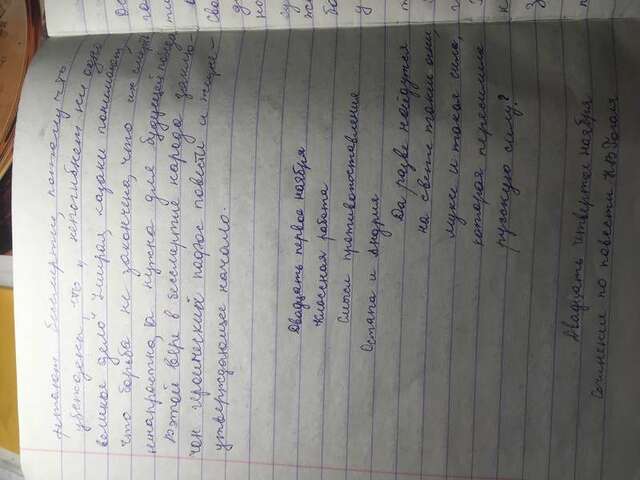 делают бессмертие, потому что
убеждены, что „непогибнет ни одно
великое дело". Умирая, казаки понимают,
что борьба не закончена, что их смерть
ненапрасна, а нужна для будущей
в этой вере в бессмертие народа заклю-
чен героический пафос повести и жизне-
утверждающее начало.
Двадцать первое ноября
Классная работа
Смысл противопоставления
Остапа и Андрия
Да разве найдутся
на свете такие огни,
муки и такая сила,
которая пересилила
русскую силу?
Двадцать четвертое ноября
Сочинение по повести Н.В.Гоголя